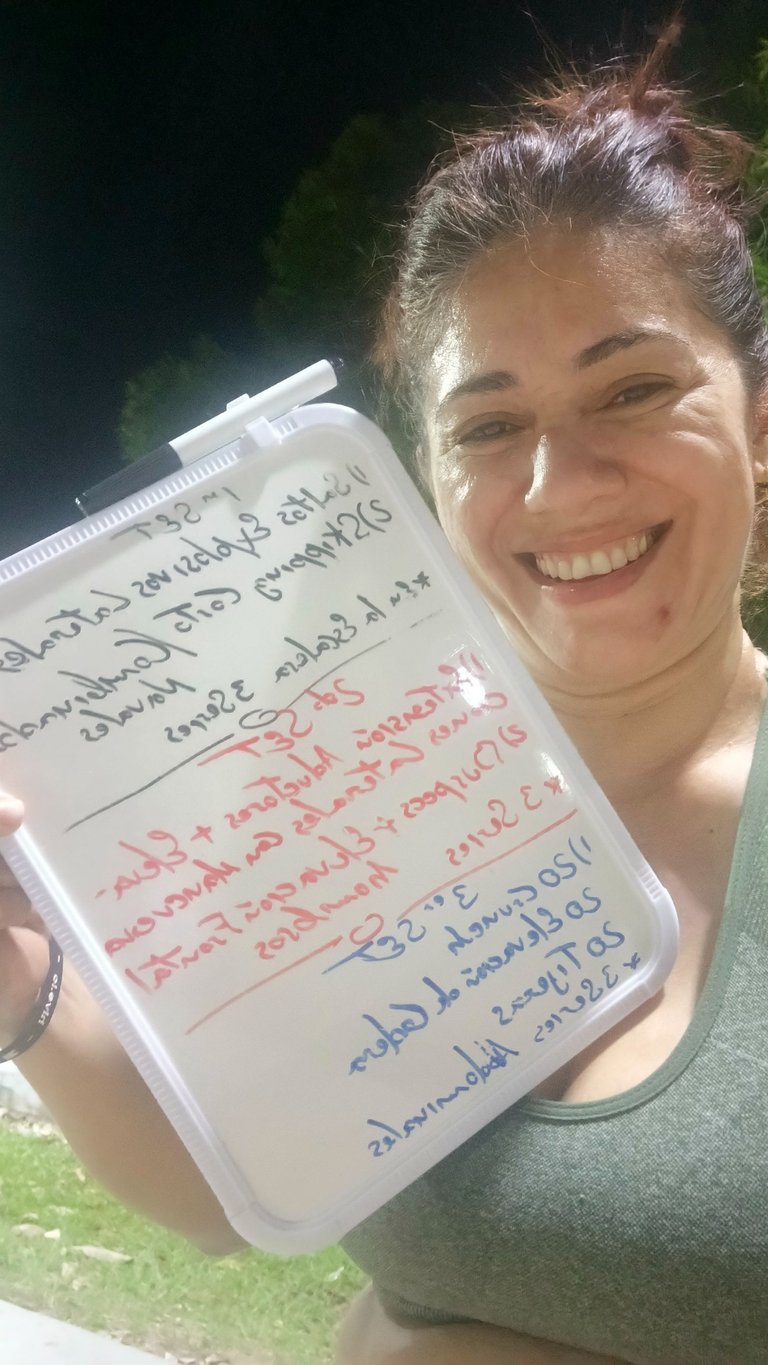 1er SET
1) Saltos Explosivos Laterales
2) SKipping Corto (Combinado
*En la Escalera 3 Series
2do SET
1) Extensión Aductores + Eleva-
ciones Laterales con Mancuerna
2) Burpees + Elevación Frontal
Hombros
* 3 Series
3er SET
1) 20 Crunch
20 Elevación de Cadera
20 Tijeras
* 3 Series Abdominales